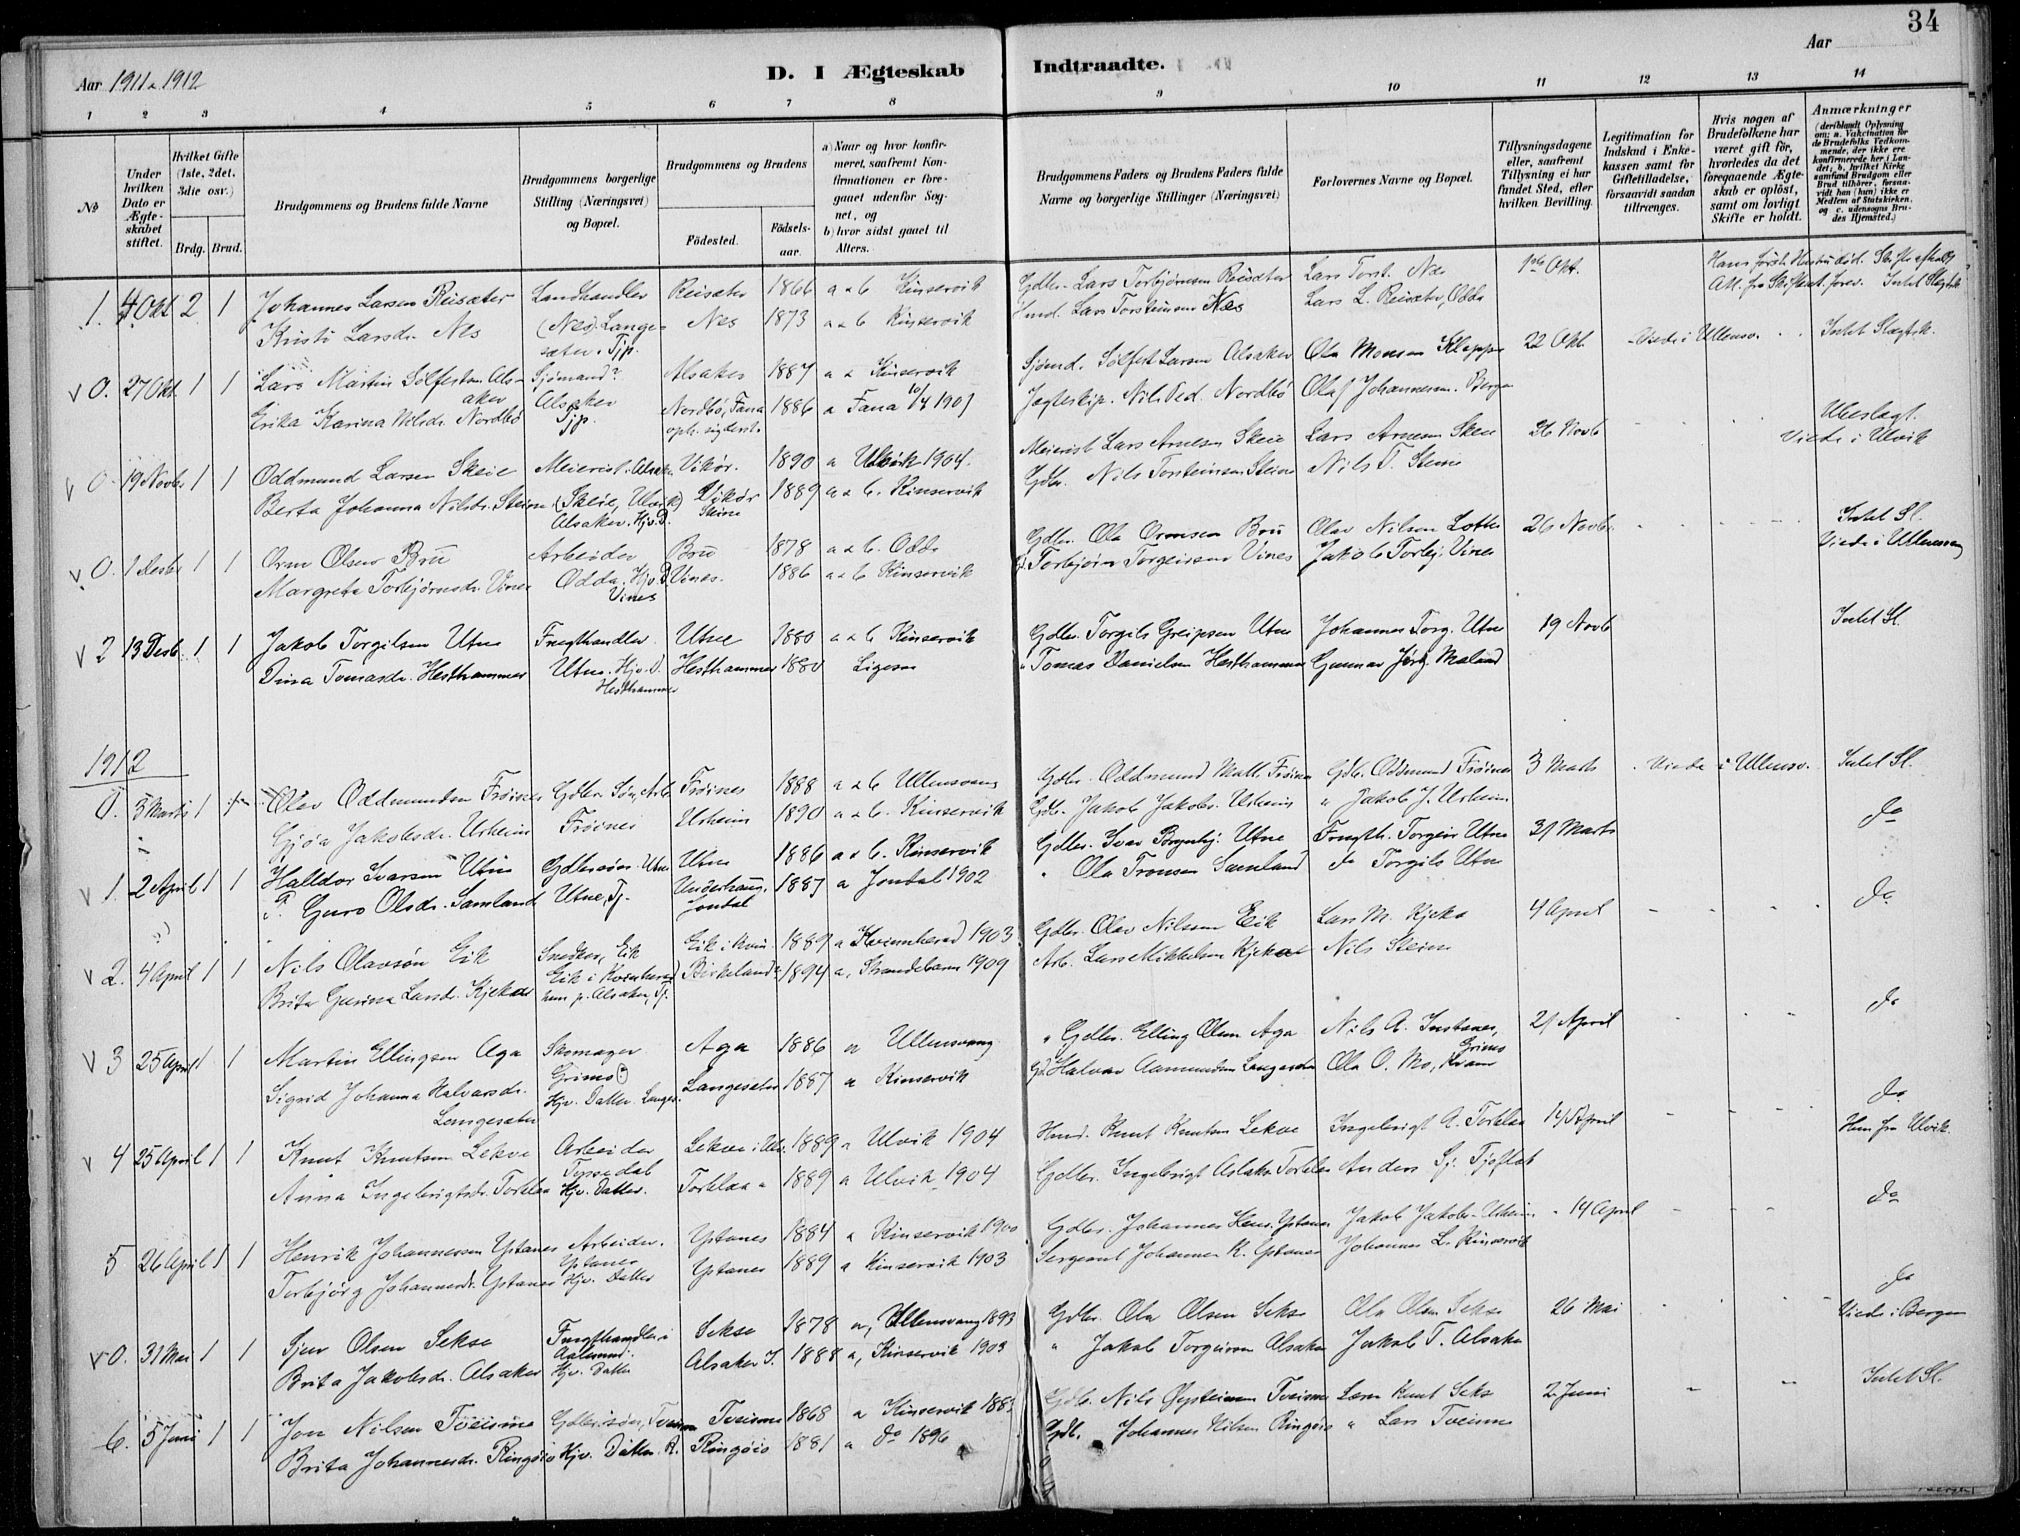 34
Aar 1911 & 1912
D. I Ægteskab
Indtraadte.
Aar
1 2 3 4 5 6 7 8 9 10 11 12 13 14
№
Under hvilken Dato er Ægteskabet stiftet.
Hvilket Gifte (1ste, 2det, 3die osv.)
Brdg. Brud.
Brudgommens og Brudens fulde Navne
Brudgommens borgerlige Stilling (Næringsvei) og Bopæl.
Brudgommens og Brudens
Fødested.
Fødselsaar.
a) Naar og hvor konfirmeret, saafremt Konfirmationen er foregaaet udenfor Sognet, og
b) hvor sidst gaaet til Alters.
Brudgommens Faders og Brudens Faders fulde Navne og borgerlige Stillinger (Næringsvei)
Forlovernes Navne og Bopæl.
Tillysningsdagene eller, saafremt Tillysning ei har fundet Sted, efter hvilken Bevilling.
Legitimation for Indskud i Enkekassen samt for Giftetilladelse, forsaavidt saadan tiltrænges.
Hvis nogen af Brudefolkene har været gift før, hvorledes da det foregaaende Ægteskab er opløst, samt om lovligt Skifte er holdt.
Anmærkninger
(deriblandt Oplysning om: a. Vakcination for de Brudefolks Vedkommende, der ikke ere konfirmerede her i Landet; b. hvilket Kirkesamfund Brudgom eller Brud tilhører, forsaavidt han (hun) ikke er Medlem af Statskirken, og c. udensogns Brudes Hjemsted.)
1. 4 Okt 2 1 Johannes Larsen Reisæter Landhandler Reisæter 1866 a & b Kinservik Gdbr. Lars Torbjørnsen Reisæter Lars Torst. Næs Okt.
Kristi Larsdr. Nes (Nes) Langesæter. Tjp. Nes 1873 a & b Kinservik Hmd. Lars Torsteinsen Næs Lars L. Reisæter, Odda Intet Slægtsk.
v 0. 27 Okt. 1 1 Lars Martin Sølfestsen Alsaker Sjømand Alsaker 1887 a & Kinservik Sjømd. Sølfest Larsen Alsaker Ola Monsen Kleppe 22 Okt Viede i Ullensv. Intet Slægtsk.
Erika Karina Nilsdr. Nordbø Alsaker Tjp. Nordbø, Fana 1886 a Fana 1901 Jægteskip. Nils Ped. Nordbø Olaf Johannesen. Bergen
v 0. 19 Novbr. 1 1 Oddmund Larsen Skeie Meierist. Alsaker Vikør. 1890 a Ulvik 1904. Meierist Lars Arnesen Skeie Lars Arnesen Skeie 26 Novb Ubeslægt. Viede i Ulvik
Berta Johanna Nilsdr. Steine (Skeie, Ulvik) Alsaker. Hjv. D. Vikør Steine 1889 a & b. Kinservik Gdbr. Nils Torsteinsen Steine Nils T. Steine
v 0. 1 Desb. 1 1 Orm Olsen Bru Arbeider Bru 1878 a & b. Odda Gdbr. Ola Ormsen Bru Olav Nilsen Lotte 26 Novb. Intet Sl.
Margreta Torbjørnsdr. Vines Odda. Hjv. D. Vines Vines. 1886 a & b Kinservik Torbjørn Torgeirsen Vines Jakob Torbj. Vines Viede i Ullensvang
v 2 13 Desb. 1 1 Jakob Torgilsen Utne Frugthandler Utne 1880 a & b Kinservik Gdbr. Torgils Greipsen Utne Johannes Torg. Utne 19 Novb Intet Sl.
Dina Tomasdr. Hesthammer Utne. Hjv. D. Hesthammer Hesthammer 1880 Ligesaa " Tomas Danielsen Hesthammer Gunnar Jørg. Maland
1912
0. 3 Marts 1 Olav Oddmundsen Frøines Gdbr. Søn, Arb. Frøines 1888 a & b Ullensvang Gdbr. Oddmund Matt. Frøines Gdb. Oddmund Frøines 3 Marts Viede i Ullensv. Intet Sl.
Gjøa Jakobsdr. Urheim Frøines Urheim 1890 a & b. Kinservik Gdb. Jakob Jakobs. Urheim " Jakob J. Urheim
v 1. 2 April 1 1 Halldor Ivarsen Utne Gdbrsøn. Utne Utne 1886 a & b. Kinservik Gdbr. Ivar Utne Frugth. Torgeir Utne 31 Marts do
P. Guro Olsdr. Samland Utne, Tj. Underhaug. Jondal 1887 a Jondal 1902 " Ola Tronsen Samland do Torgils Utne
v 2. 4 April 1 1 Nils Olavsøn Eik Snedker, Eik Eik i Kvin. 1889 a Kvinnherad 1903 Gdbr. Olav Nilssen Eik Lars M. Kjeka 4 April do
Brita Gurina Larsdr. Kjekæ Eik i Kvinherad hun p. Alsaker, Tj. Birkeland 1894 a. Strandebarm 1909 Arb. Lars Mikkelsen Kjekæ Nils Steine
v 3 25 April 1 1 Martin Ellingsen Aga Skomager Aga 1886 a Ullensvang " Gdbr. Elling Olsen Aga Nils A. Instanes, Grimo 21 April do
Sigrid Johanna Halvarsdr. Langesæter Grimo Hjv. Datter. Langes. Langesæter 1887 a Kinservik Gd. Halvar Aamundsen Langesæter Ola O. Mo, Kvam
v 4 25 April 1 1 Knut Knutsen Lekve Arbeider Lekve i Ulv. 1889 a Ulvik 1904 Hmd. Knut Knutsen Lekve Ingebrigt A. Torblaa 14 April do
Anna Ingebrigtsdr. Torblaa Tyssedal Hjv. Datter. Torblaa " 1889 a Ulvik 1904 Gdbr. Ingebrigt Aslaks. Torblaa Anders Sj. Tjoflot Hun fra Ulvik.
5 26 April 1 1 Henrik Johannessen Ystanes Arbeider. Ystanes 1884 a Kinservik 1900 Gdbr. Johannes Hens. Ystanes Jakob Jakobs. Urheim 14 April do
Torbjørg Johannesdr. Ystanes Ystanes Hjv. Datter Ystanes 1889 a Kinservik 1903 Sergeant Johannes K. Ystanes Johannes L. Kinservik
v 0. 31 Mai 1 1 Sjur Olsen Sekse Frugthandler i Aalesund. Sekse 1878 a, Ullensvang 1893 Gdbr. Ola Olsen Sekse Ola Olsen Sekse 26 Mai do
Brita Jakobsdr. Alsaker Hjv. Datter Alsaker 1888 a, Kinservik 1903 " Jakob Torgeirsen Alsaker Jakob T. Alsaker Viede i Bergen
6. 5 Juni 1 1 Jon Nilsen Tveisme Gdbr.søn, Tveisme Tveisme 1868 a Kinservik 1883 Gdb. Nils Øysteinsen Tveisme Lærer Knut Sekse 2 Juni Intet Sl.
Brita Johannesdr. Ringøio Hjv. Datter. R. Ringøio 1881 a do 1896 Gdb. Johannes Nilsen Ringøio " Lars Tveisme